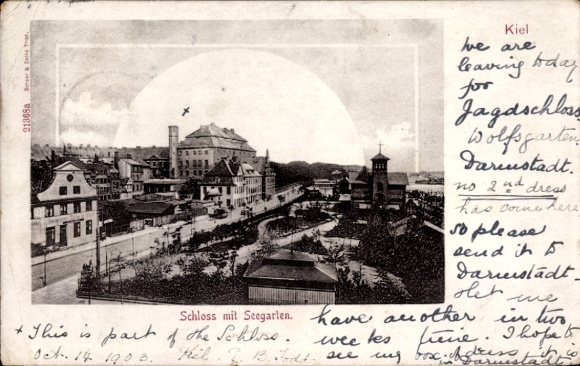 Kiel
21368a
We are
leaving today
for
Jagdschloss
Wolfsgarten
Darmstadt.
no 2nd dress
has come here
so please
send it to
Darmstadt.
Let me
Schloss mit Seegarten.
have another in two
weeks time. I hope to
see my box. Address it to
in Darmstadt
+ This is part of the Schloss.
Oct. 14. 1903.